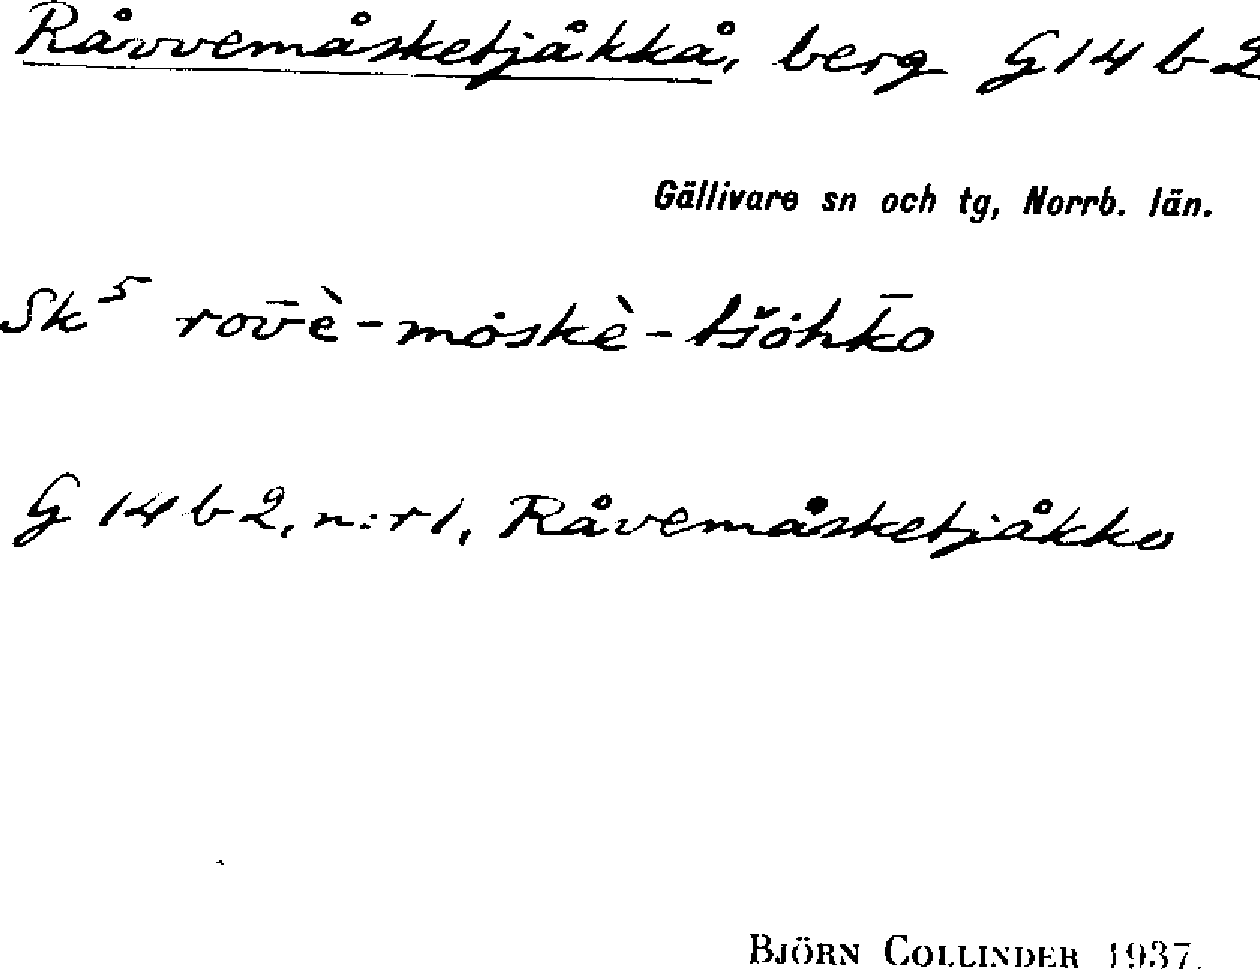 Råvvemåsketjåkkå, berg G14 b 2
Gällivare sn och tg, Norrb. län.
Sk⁵ rov̄è-mȯskè-tšȯhk̄o
G 14 b 2, n:r 1, Råvemåsketjåkko
BJÖRN COLLINDER 1937.